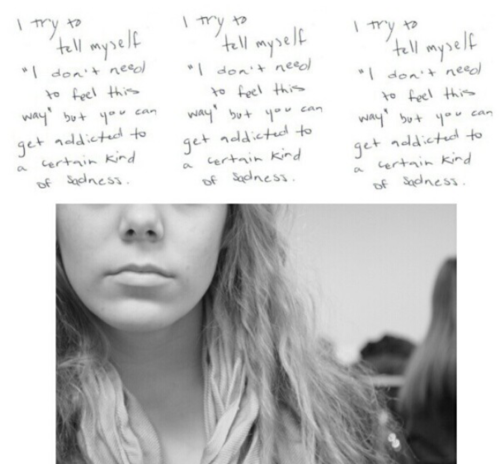 I try to
tell myself
"I don't need
to feel this
way" but you can
get addicted to
a certain kind
of sadness.
I try to
tell myself
"I don't need
to feel this
way" but you can
get addicted to
a certain kind
of sadness.
I try to
tell myself
"I don't need
to feel this
way" but you can
get addicted to
a certain kind
of sadness.